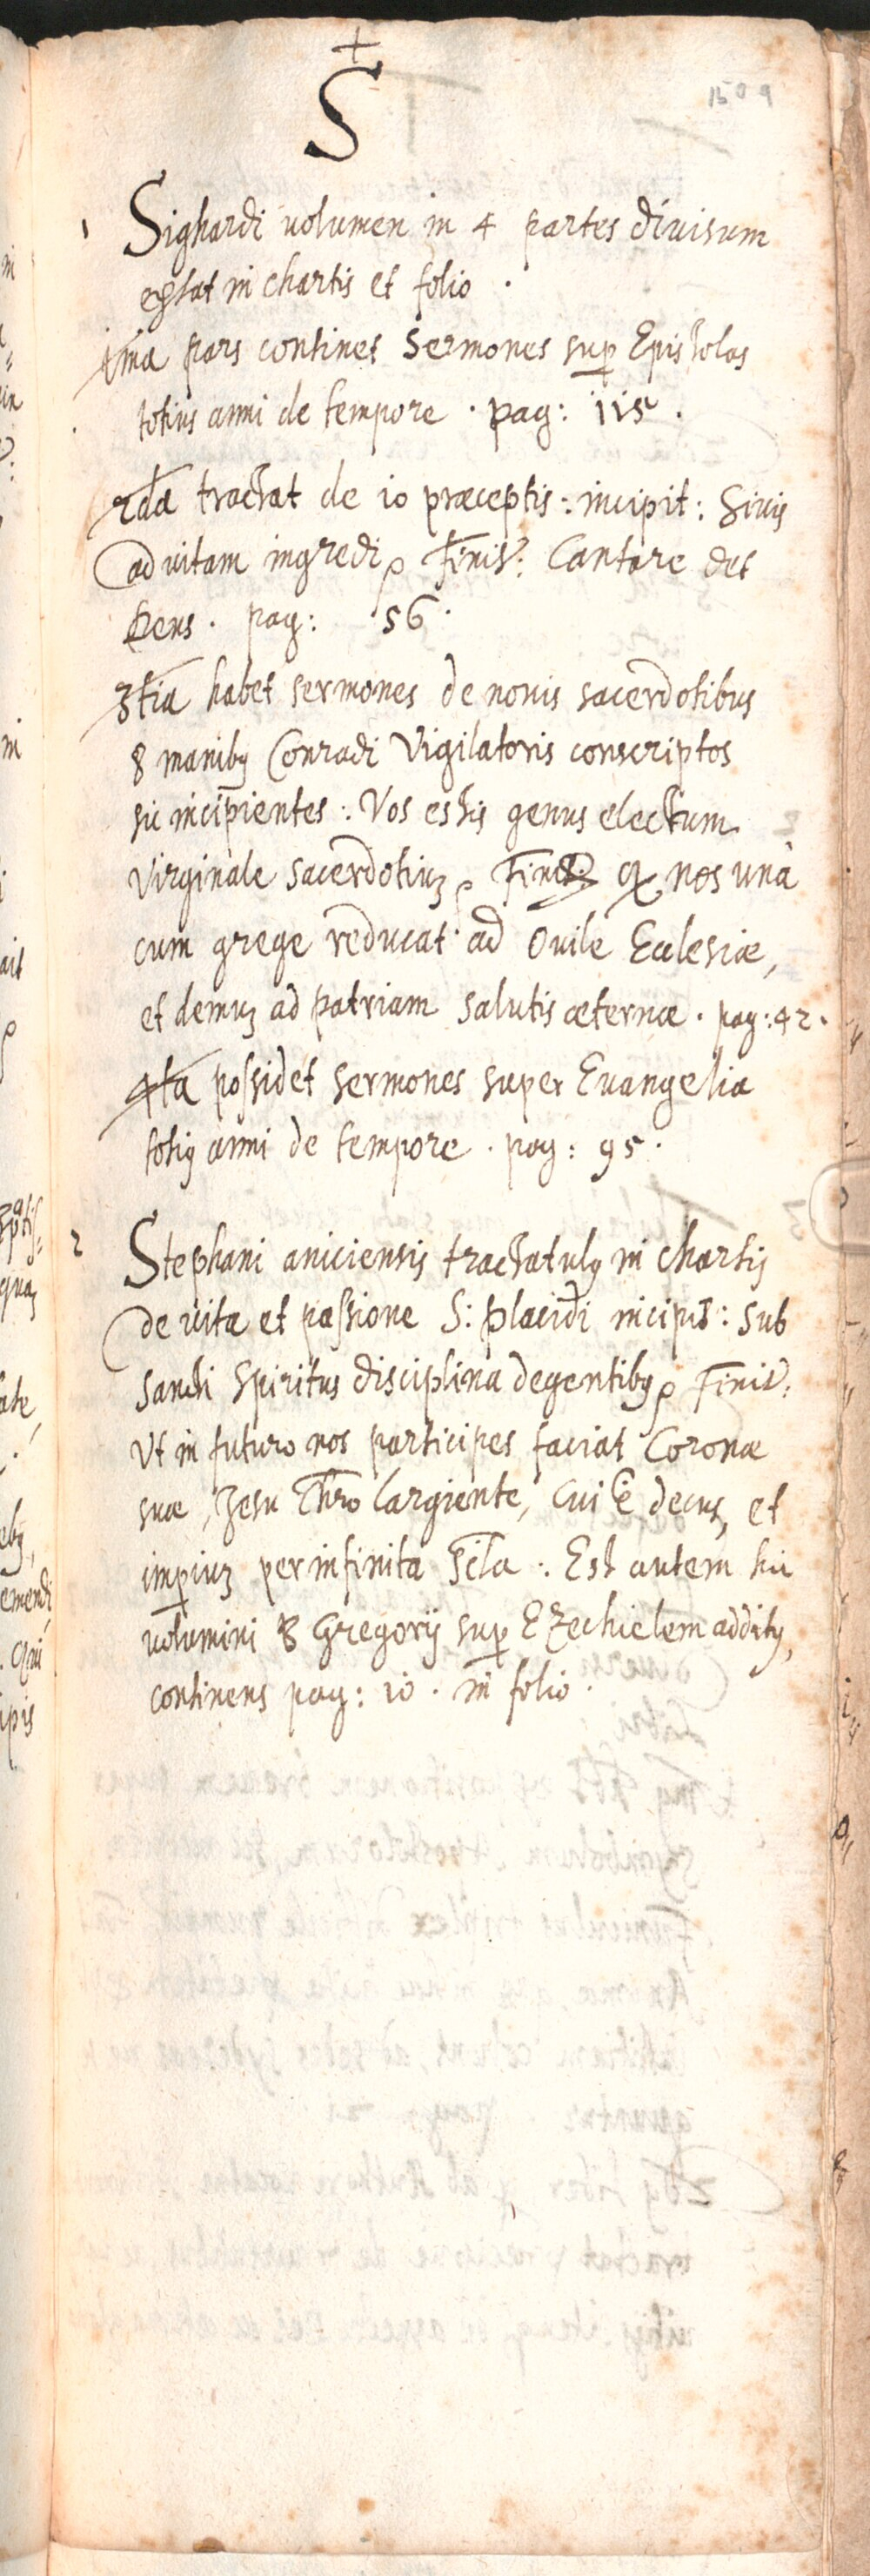 1509
S
1 Sighardi uolumen in 4 partes diuisum
extat in chartis et folio .
1ma pars continet Sermones sup Epistolas
totius anni de tempore . pag: 115 .
2da tractat de 10 præceptis: incipit: Si uis
ad uitam ingredi Finit: Cantare det
Deus . pag: 56 .
3tia habet sermones de nouis sacerdotibus
8 manibꝫ Conradi Vigilatoris conscriptos
sic incipientes : Vos estis genus electum
virginale sacerdotiuꝫ Finit: nos unà
cum grege reducat ad Ouile Ecclesiæ,
et demuꝫ ad patriam salutis æternæ . pag: 42 .
4ta possidet sermones super Euangelia
totiꝰ anni de tempore . pag: 95 .
2 Stephani aniciensis tractatulꝰ in chartis
de uita et passione S: placidi incipit: sub
Sancti Spiritus disciplina degentibꝰ Finit:
Vt in futuro nos participes faciat Coronæ
suæ, Jesu Chro largiente, cui ē decus, et
imperiuꝫ per infinita scla . Est autem hic
uolumini 8 Gregorij sup Ezechielem additꝰ,
continens pag: 10 . in folio .